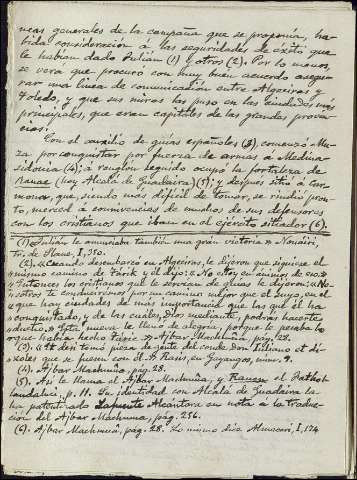 neas generales de la campaña que se proponía, ha-
bida consideración á las seguridades de éxito que
le habían dado Julián (1) y otros (2). Por lo menos,
se verá que procuró con muy buen acuerdo asegu-
rar una línea de comunicación entre Algeciras y
Toledo, y que sus miras las puso en las ciudades más
principales, que eran capitales de las grandes provin-
cias.
Con el auxilio de guías españoles (3), comenzó Mu-
za por conquistar por fuerza de armas á Medina-
sidonia (4); á renglón seguido ocupó la fortaleza de
(hoy Alcalá de Guadaira) (5); y después sitió á Car-
mona, que, siendo más difícil de tomar, se rindió pron-
to, merced á connivencias de muchos de sus defensores
con los cristianos que iban en el ejército sitiador (6).
(1) Julián le anunciaba también una gran victoria. Nouairi,
Tr. de Slane, I, 350.
(2) «Cuando desembarcó en Algeciras, le dijeron que siguiese el
mismo camino de Tárik y él dijo: «No estoy en ánimo de eso.»
Entonces los cristianos que le servían de guías le dijeron: «No-
sotros te conduciremos por un camino mejor que el suyo, en el
que hay ciudades de más importancia que las que él ha
conquistado, y de las cuales, Dios mediante, podrás hacerte
dueño.» Esta nueva le llenó de alegría, porque le pesaba lo
que había hecho Táric.» Ajbar Machmuâ, pág. 28.
(3) « tomó pieza de gente del conde Don Illiano et di-
xoles que se fuesen con él. A. Rasis, en Gayangos, núm. 9.
(4). Ajbar Machmuâ, pág. 28.
(5). Así le llama el Ajbar Machmuâ, y el Fatho-l
andaluci, p. 11. Su identidad con Alcalá de Guadaira la
ha patentizado Lafuente Alcántara en nota á la traduc-
ción del Ajbar Machmuâ, pág. 256.
(6). Ajbar Machmuâ, pág. 28. Lo mismo dice Almaccari, I, 174